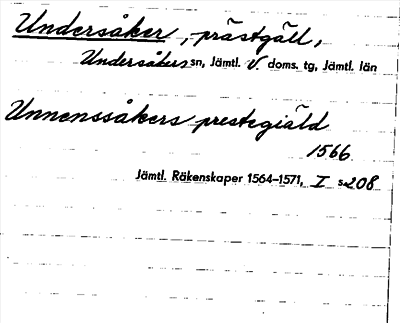 Undersåker, prästgäll,
Undersåkers sn, Jämtl. V. doms. tg, Jämtl. län
Unnenssåkers prestegiäld
1566
Jämtl. Räkenskaper 1564–1571, I s. 208